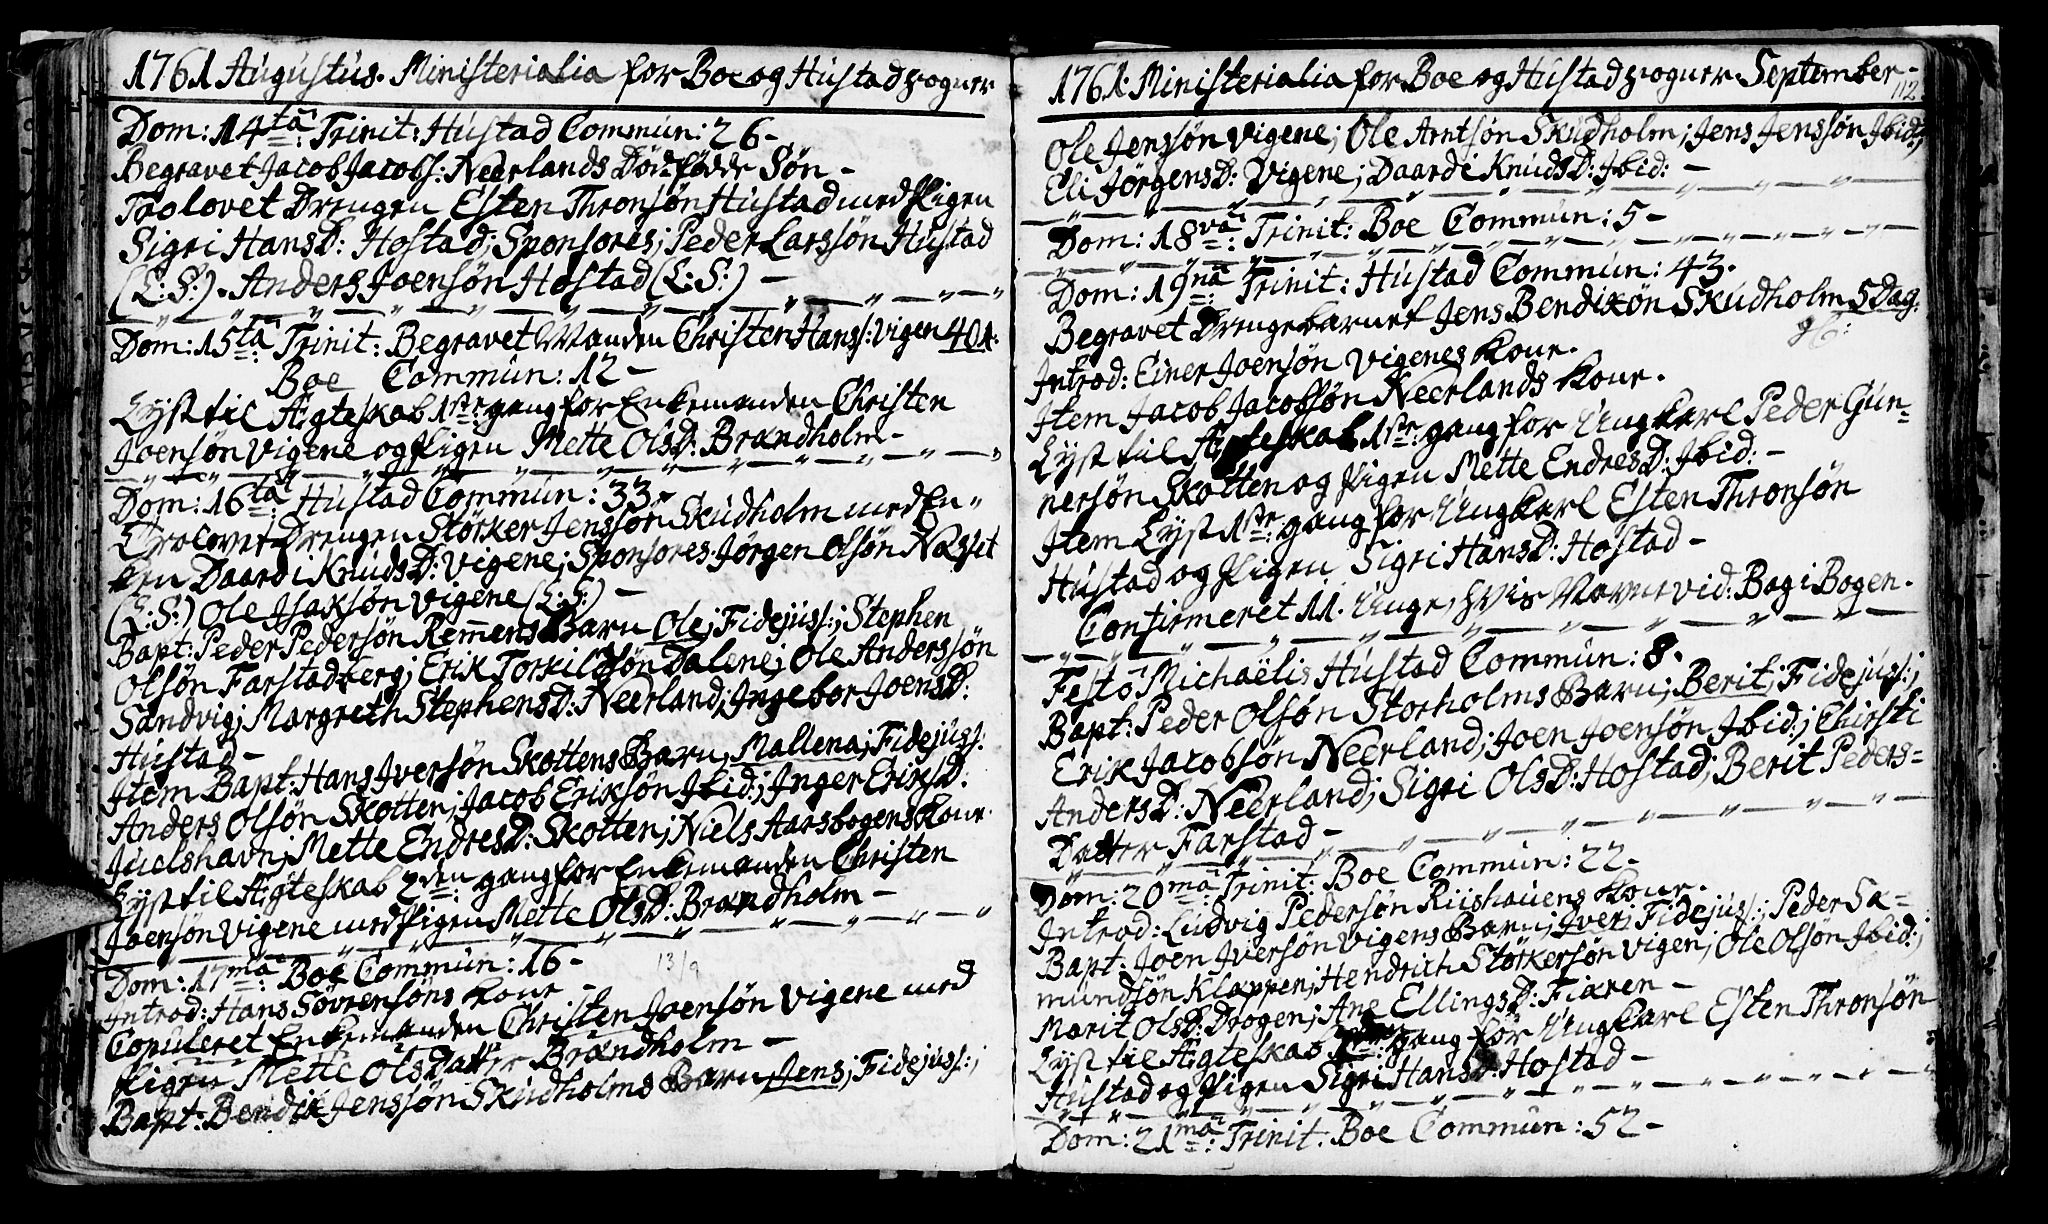 1761 Augustus. Ministerialia for Boe og Hustad sogner
Dom: 14ta: Trinit: Hustad Commun: 26 -
Begravet Jacob Jacobs: Neerlands Dødfødde Søn -
Trolovet Drengen Esten Thronsøn Hustad med Pigen
Sigri HansD: Hostad; Sponsores; Peder Larssøn Hustad
(L:S:). Anders Joensøn Hostad (L:S:) -
Dom: 15ta: Trinit: Begravet Manden Christen Hans: Vigen 40 A:
Boe Commun: 12 -
Lyst til Ægteskab 1ste gang for Enkemanden Christen
Joensøn Vigene og Pigen Mette OlsD: Brandholm -
Dom: 16ta: Hustad Commun: 33 -
Trolovet Drengen Størker Jenssøn Skudholm med En-
ken Daardi KnudsD: Vigene; Sponsores Jørgen Olsøn Næsset
(L:S:) Ole Jsaksøn Vigene (L:S:) -
Bapt: Peder Pedersøn Remmens Barn Ole; Fidejuss:; Stephen
Olsøn Farstadberg; Erik Torkildsøn Dalene; Ole Anderssøn
Sandvig; Margreth StephensD: Neerland; Ingebor JoensD:
Hustad -
Jtem Bapt: Hans Jversøn Skottens Barn; Mallena; Fidejuss:
Anders Olsøn Skotten; Jacob Eriksøn Jbid:; Inger EriksD:
Juelshavn; Mette EndresD: Skotten; Niels Aarsbogens Kone.
Lyst til Ægteskab 2den: gang for Enkemanden Christen
Joensøn Vigene med Pigen Mette OlsD: Brandholm -
Dom: 17ma: Boe Commun: 16 -
13/9
Introd: Hans Sövrensøns Kone -
Copuleret Enkemanden Christen Joensøn Vigene med
Pigen Mette OlsDatter Brandholm -
Bapt: Bendik Jenssøn Skudholms Barn Jens; Fidejuss:;
1761. Ministerialia for Boe og Hustad sogner September -
112
Ole Jensøn Vigene; Ole Arntsøn Skudholm; Jens Jenssøn Jbid:;
Eli JörgensD: Vigene; Daardi KnudsD: Jbid: -
Dom: 18va: Trinit: Boe Commun: 5 -
Dom: 19na: Trinit: Hustad Commun: 43.
Begravet Drengebarnet Jens Bendiksøn Skudholm 5 Dag:
Introd: Einer Joensøn Vigenes Kone.
Jtem Jacob Jacobsøn Neerlands Kone.
Lyst til Ægteskab 1ste: gang for Ungkarl Peder Gun-
nersøn Skotten og Pigen Mette EndresD: Jbid: -
Jtem Lyst 1ste: gang for Ungkarl Esten Thronsøn
Hustad og Pigen Sigri HansD: Hostad -
Confirmeret 11. Unge, hvis Navne vid: Bag i Bogen.
Festo Michaëlis Hustad Commun: 8.
Bapt: Peder Olsøn Storholms Barn; Berit; Fidejuss:;
Erik Jacobsøn Neerland; Joen Joensøn Jbid:; Chirsti
AndersD: Neerland; Sigri OlsD: Hostad; Berit Peders-
Datter Farstad -
Dom: 20ma: Trinit: Boe Commun: 22 -
Introd: Ludvig Pedersøn Riishauens Kone.
Bapt: Joen Jversøn Vigens Barn; Jver; Fidejuss:; Peder Sa-
mundsøn Klappen; Hendrich Størkersøn Vigen; Ole Olsøn Jbid:;
Marit OlsD: Drogen; Ane EllingsD: Fiæren -
Lyst til Ægteskab gang for Ungkarl Esten Thronsøn
Hustad og Pigen Sigri HansD: Hostad -
Dom: 21ma: Trinit: Boe Commun: 52 -